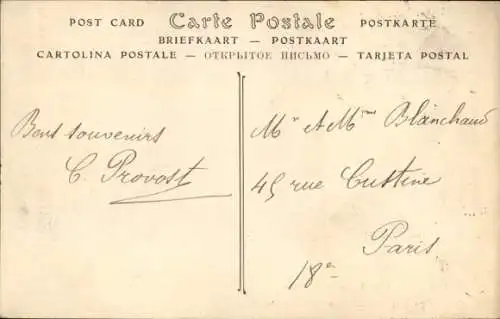 POST CARD Carte Postale POSTKARTE
BRIEFKAART — POSTKAART
CARTOLINA POSTALE — ОТКРЫТОЕ ПИСЬМО — TARJETA POSTAL
Bons souvenirs
C. Provost
Mr et Mme Blanchaud
45 rue Custine
Paris
18e